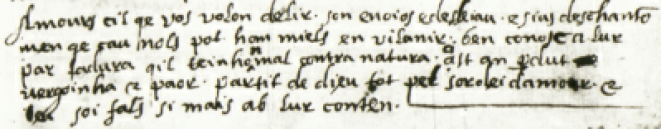 Amours cil qe vos volon delir. son enoios esleskiau. e sius deschanto
men qe gau nols pot hom miels en vilanir. ben conosc a lur
par fadura qil teinhon mal contra natura. ast an perdut
vergoinha e paor. partit de dieu tot per sorolei damour. e
soi fals si mais ab lur conten.